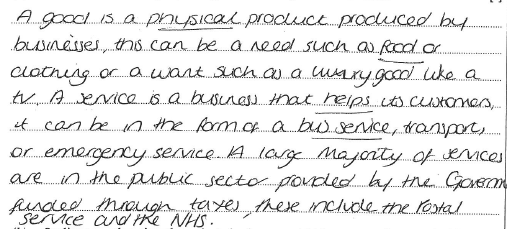 A good is a physical product produced by
businesses, this can be a need such as food or
clothing or a want such as a luxury good like a
tv. A service is a business that helps its customers,
it can be in the form of a bus service, transport,
or emergency service. A large majority of services
are in the public sector provided by the Governm
funded through taxes, these include the Postal
service and the NHS.